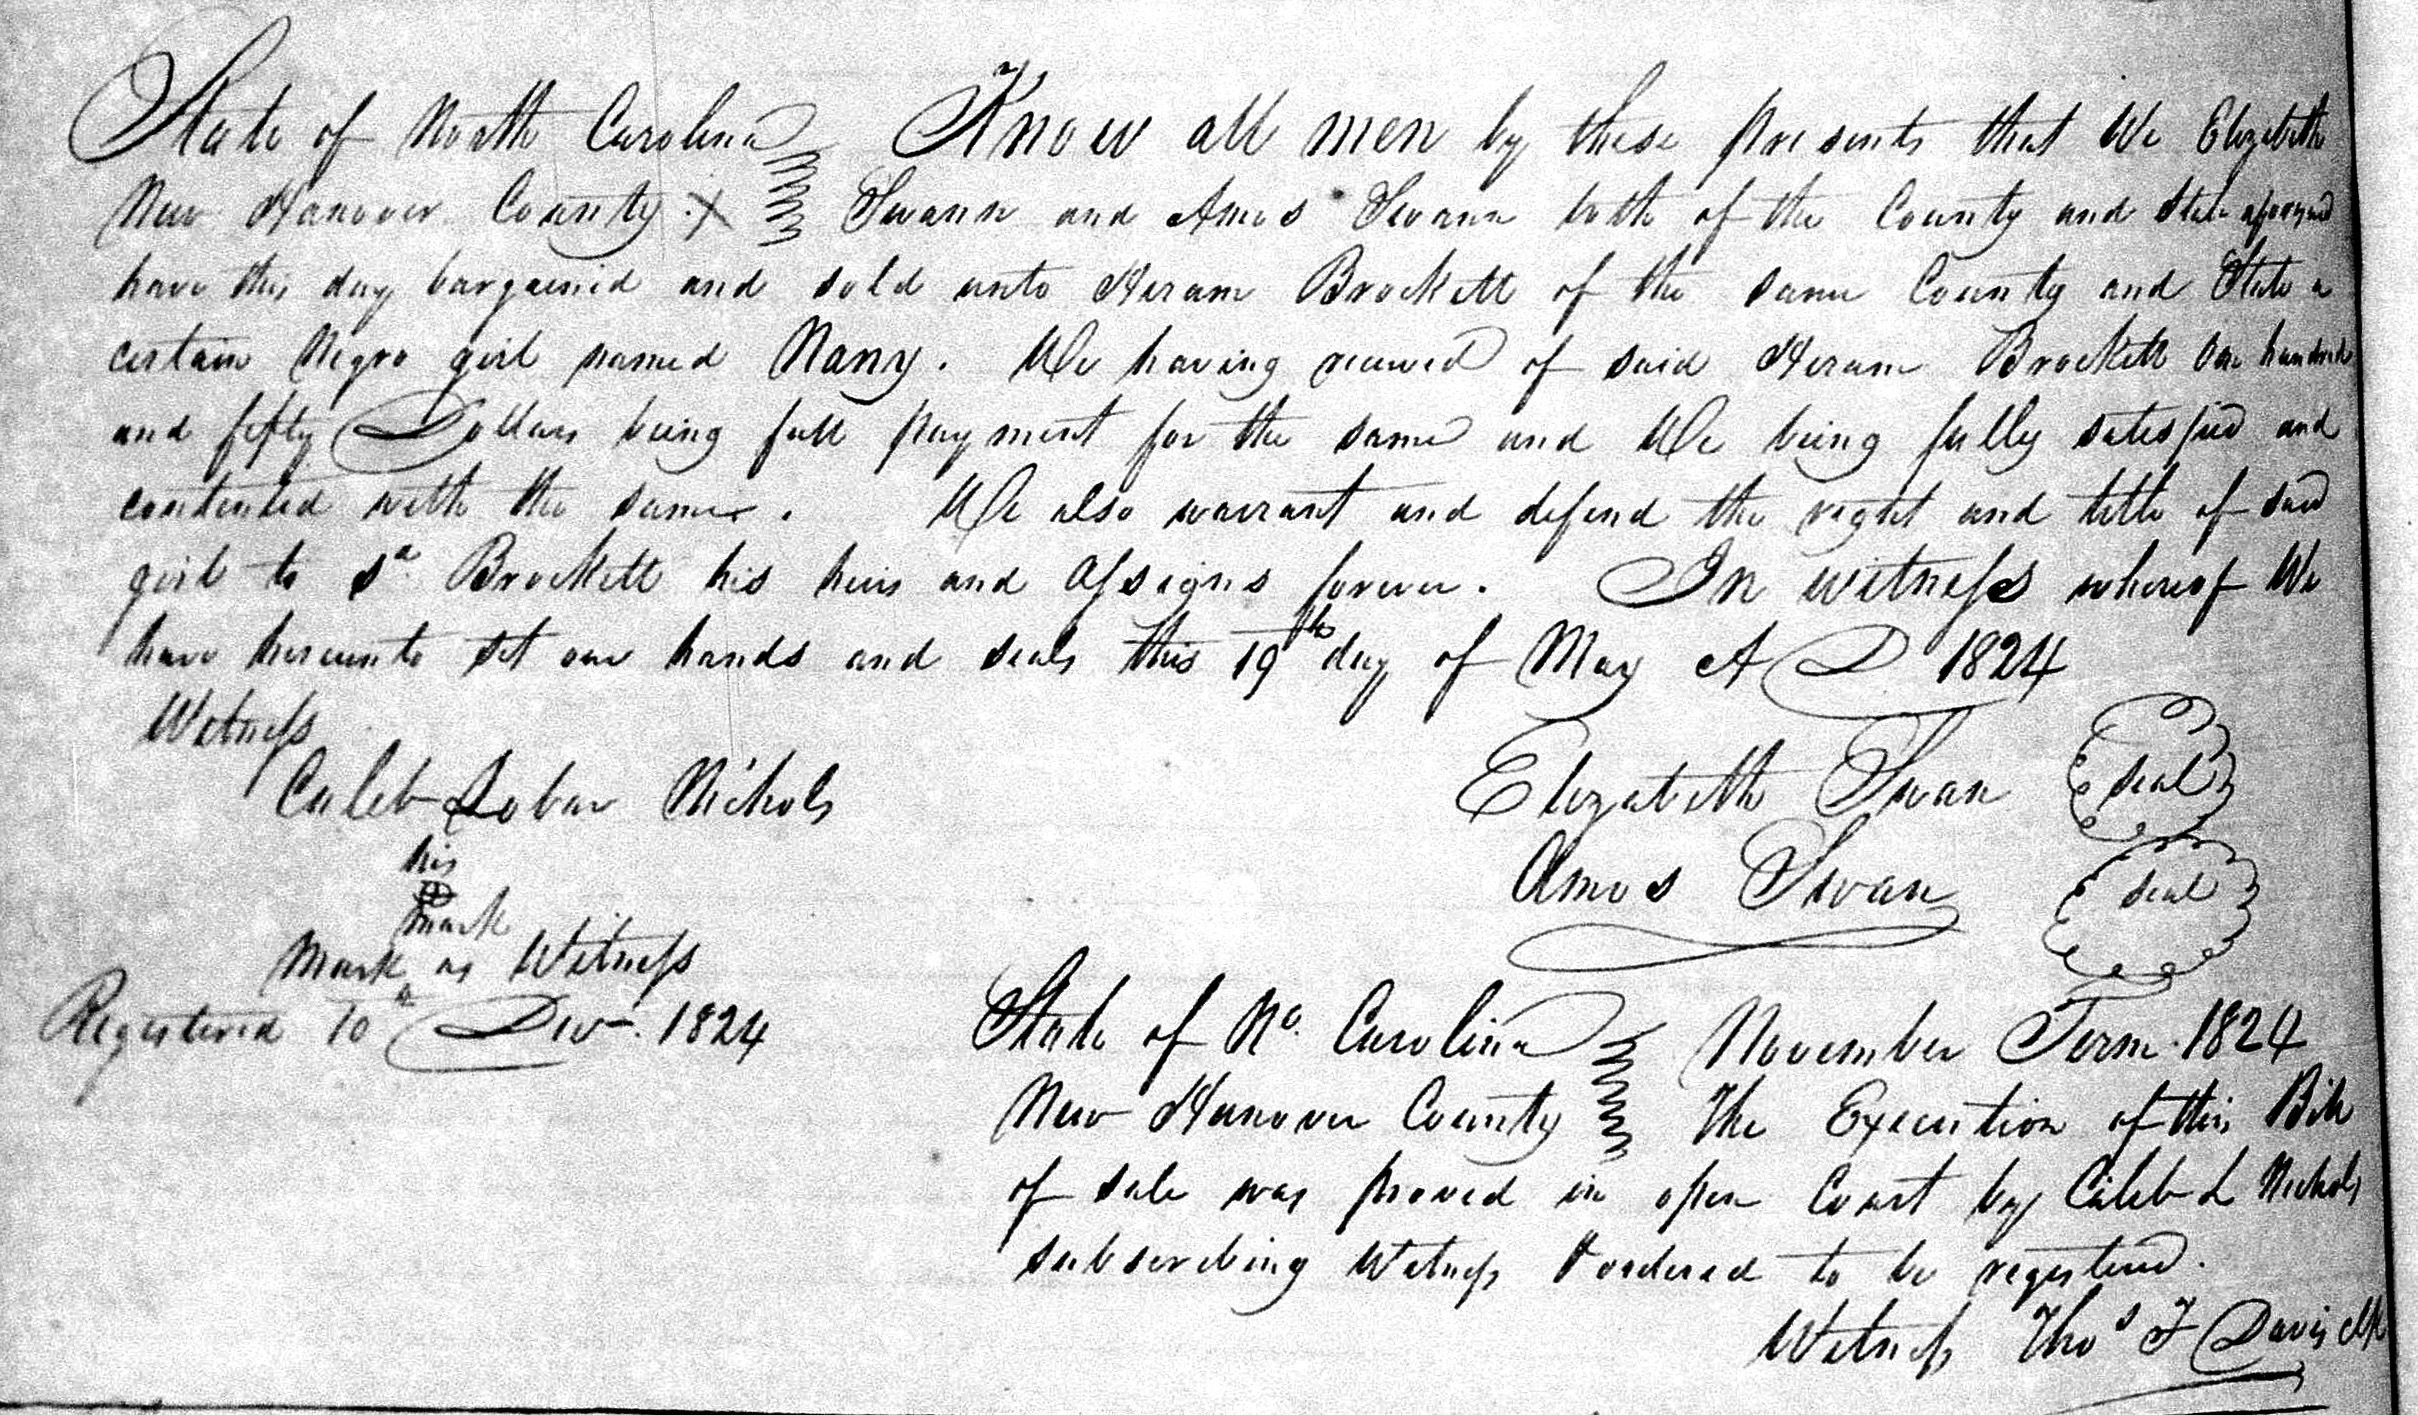 State of North Carolina Know all men by these presents that We Elizabeth
New Hanover County X Swann and Amos Swann both of the County and State aforesaid
have this day bargained and sold unto Hiram Brockett of the same County and State a
certain Negro girl named Nany. We having received of said Hiram Brockett One hundred
and fifty Dollars being full payment for the same and We being fully satisfied and
contented with the same. We also warrant and defend the right and title of said
girl to sd. Brockett his heirs and assigns forever. In witness whereof We
have hereunto set our hands and seals this 19th day of May A D 1824
Witness
Caleb Nichols
Elizabeth Swan seal
his
mark
Amos Swan seal
Mark as Witness
Registered 10th Decr. 1824
State of No. Carolina November Term. 1824
New Hanover County The Execution of this Bill
of sale was proved in open Court by Caleb L Nichols
subscribing Witness & ordered to be registered.
Witness Thos F Davis Clk